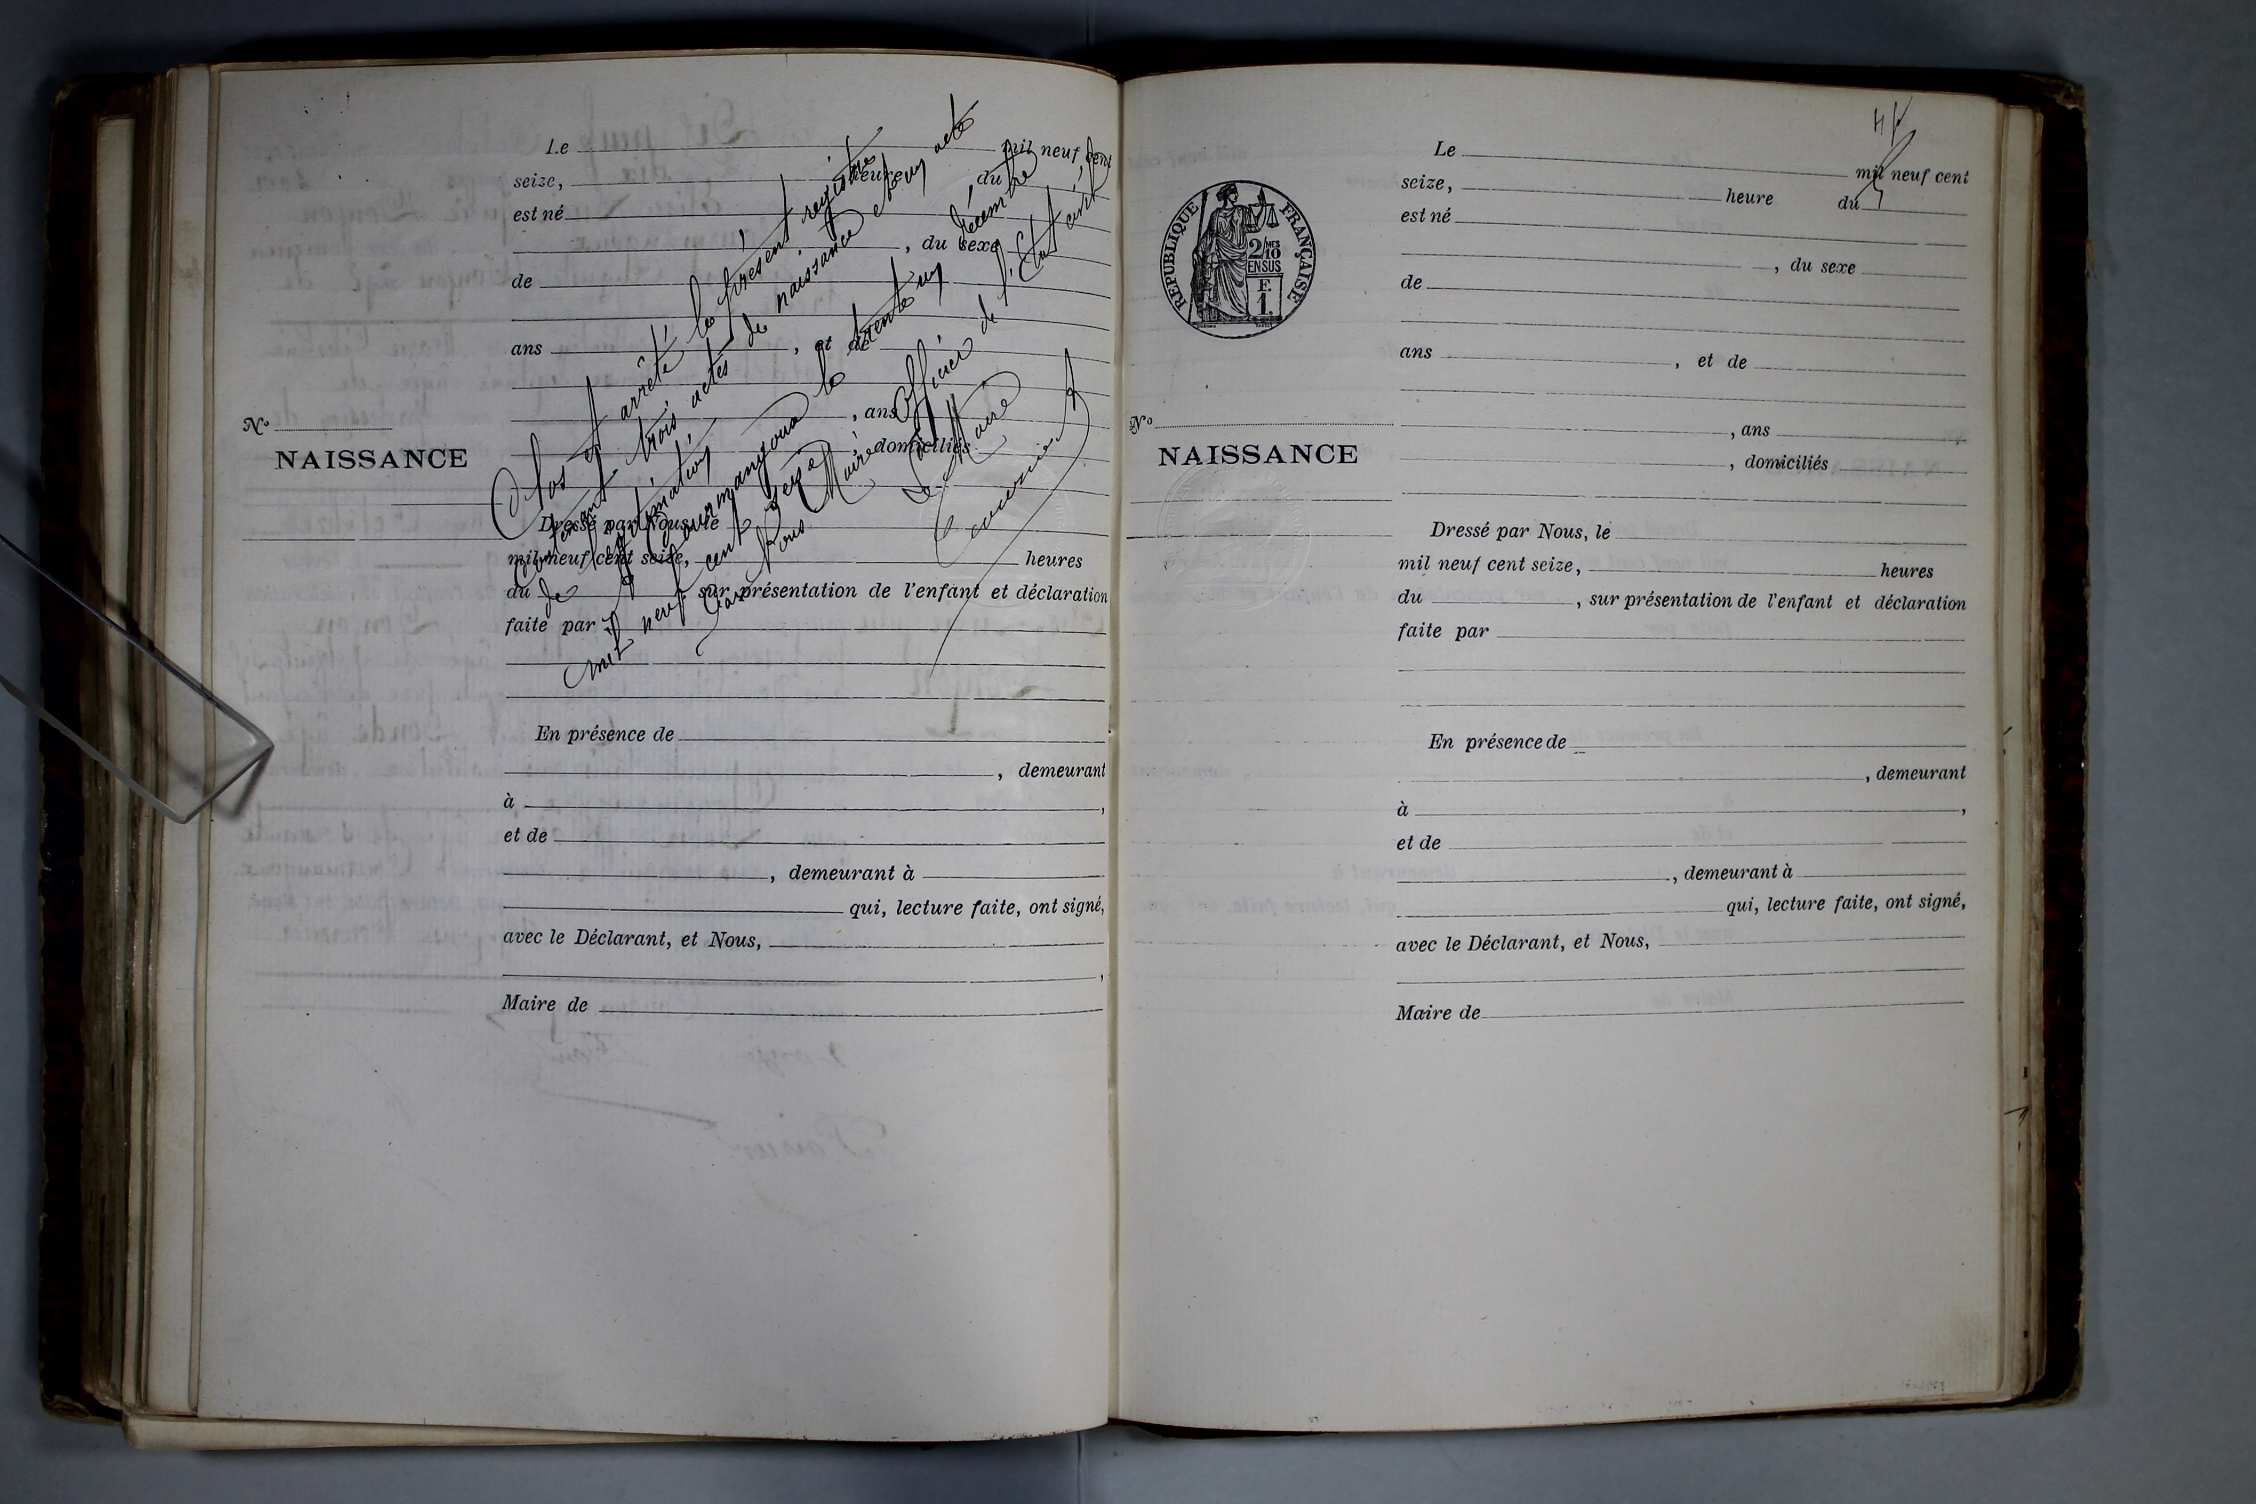 Le mil neuf cent
seize, heure du
est né
, du sexe
de
ans , et de
, ans
, domiciliés
N°
NAISSANCE
Dressé par Nous, le
mil neuf cent seize, heures
du , sur présentation de l'enfant et déclaration
faite par
En présence de
, demeurant
à ,
et de
, demeurant à
qui, lecture faite, ont signé,
avec le Déclarant, et Nous,
,
Maire de
Clos et arrêté le présent registre
Contenant trois actes de naissance et un acte
de légitimation
à Courmangoux le trente un décembre
mil neuf cent seize
Par Nous Maire Officier de l'Etat civil
Le Maire
Le mil neuf cent
seize, heure du
est né
, du sexe
de
ans , et de
, ans
, domiciliés
N°
NAISSANCE
RÉPUBLIQUE FRANÇAISE
2/MES 10
EN SUS
E.
1.
Dressé par Nous, le
mil neuf cent seize, heures
du , sur présentation de l'enfant et déclaration
faite par
En présence de
, demeurant
à ,
et de
, demeurant à
qui, lecture faite, ont signé,
avec le Déclarant, et Nous,
Maire de